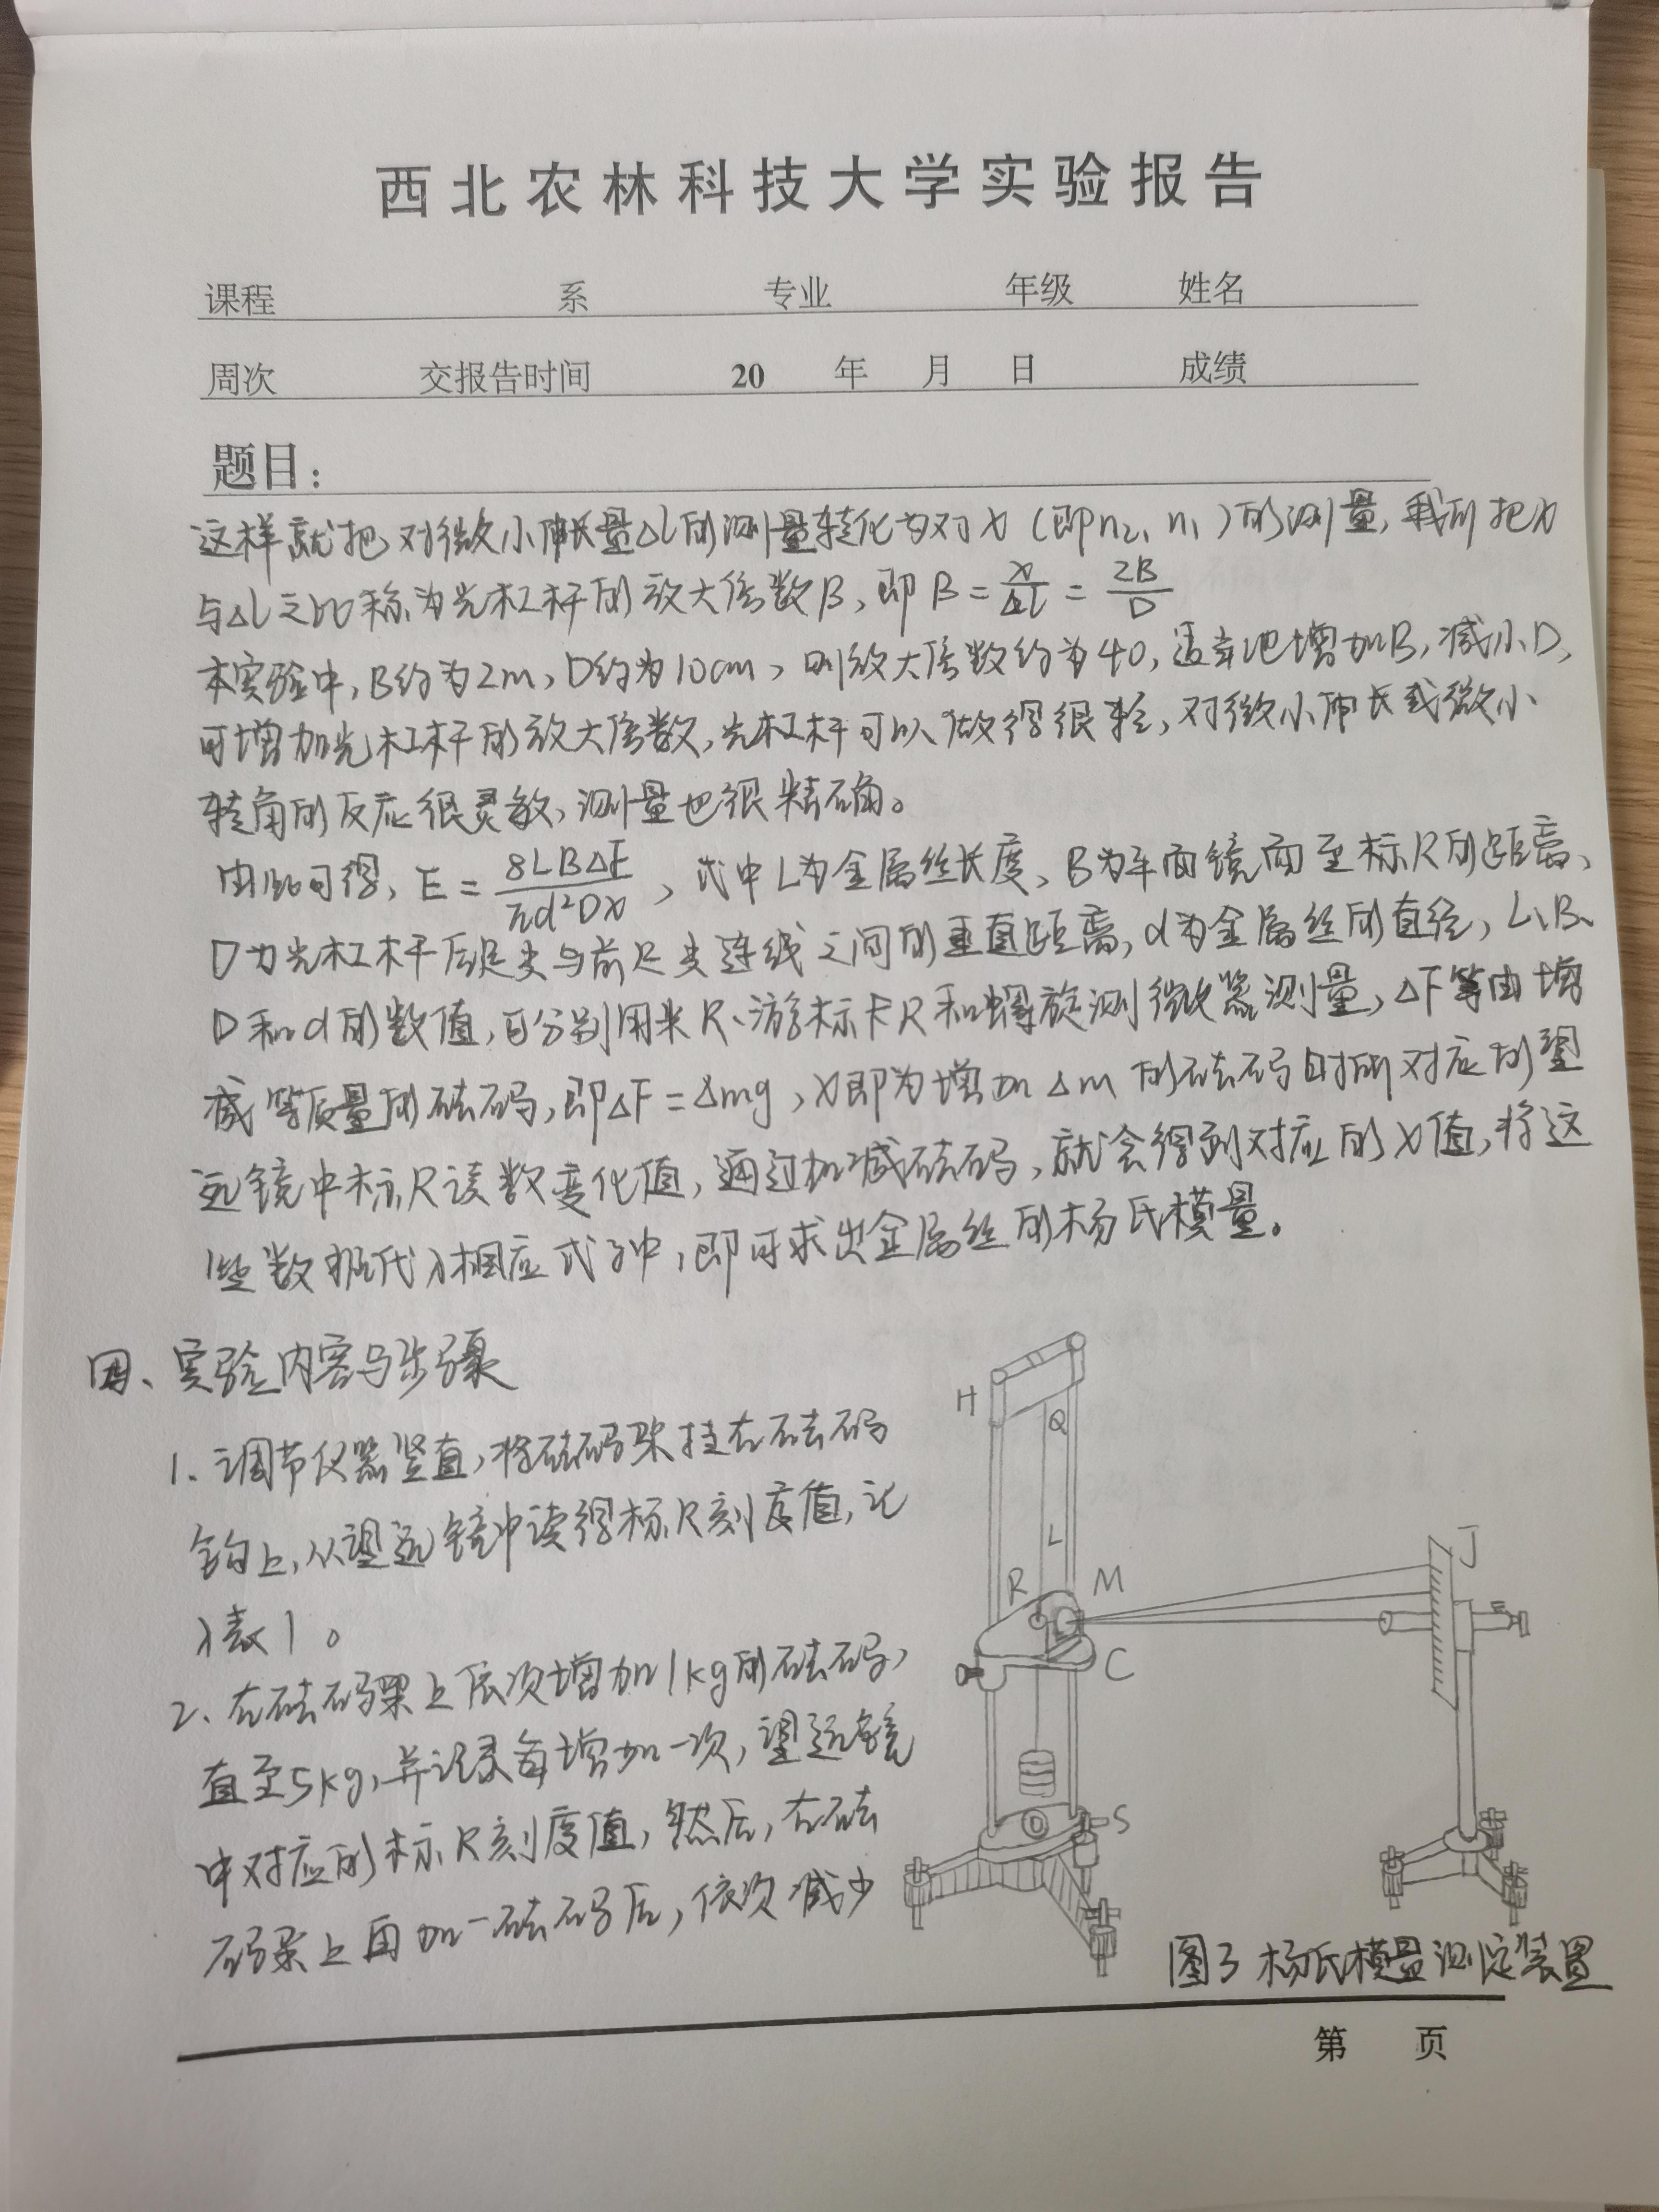 西北农林科技大学实验报告
课程 系 专业 年级 姓名
周次 交报告时间 20 年 月 日 成绩
题目:
这样就把对微小伸长量ΔL的测量转化为对x(即n₂、n₁)的测量,我们把x
与ΔL之比称为光杠杆的放大倍数B,即B=x/ΔL=2B/D
本实验中,B约为2m,D约为10cm,则放大倍数约为40,适当地增加B,减小D,
可增加光杠杆的放大倍数,光杠杆可以做得很轻,对微小伸长或微小
转角的反应很灵敏,测量也很精确。
由此可得,E=8LBΔF/πd²Dx,式中L为金属丝长度、B为平面镜面至标尺的距离、
D为光杠杆后足尖与前足尖连线之间的垂直距离,d为金属丝的直径,L、B、
D和d的数值,可分别用米尺、游标卡尺和螺旋测微器测量,ΔF等由增
减等质量的砝码,即ΔF=Δmg,x即为增加Δm的砝码时所对应的望
远镜中标尺读数变化值,通过加减砝码,就会得到对应的x值,将这
些数据代入相应式子中,即可求出金属丝的杨氏模量。
四、实验内容与步骤
1、调节仪器竖直,将砝码架挂在砝码
钩上,从望远镜中读得标尺刻度值,记
入表1。
2、在砝码架上依次增加1kg的砝码,
直至5kg,并记录每增加一次,望远镜
中对应的标尺刻度值,然后,在砝
码架上再加一砝码后,依次减少
H
Q
L
R
M
J
C
D
S
图3 杨氏模量测定装置
第 页